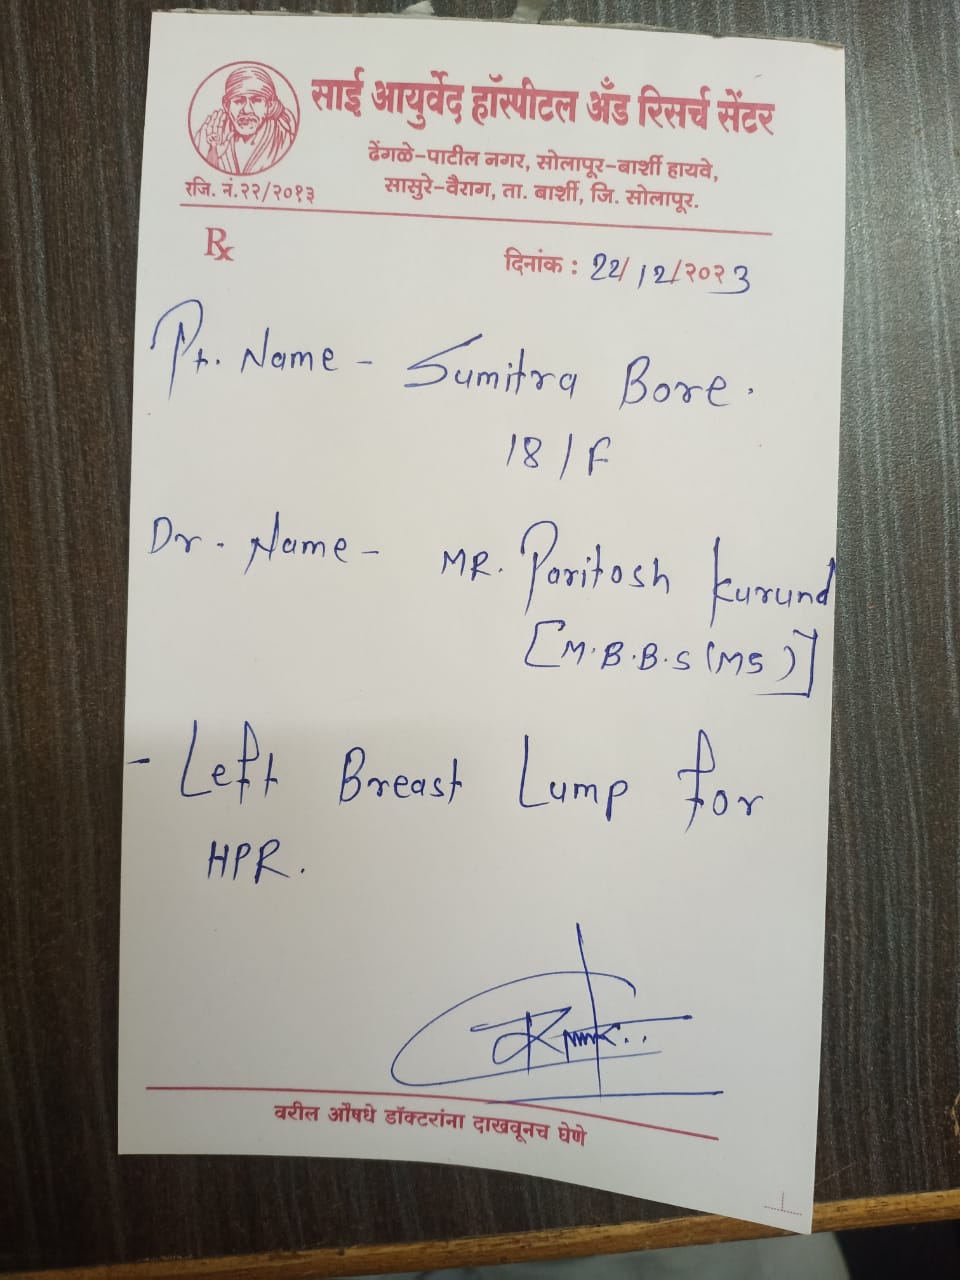 साई आयुर्वेद हॉस्पीटल अँड रिसर्च सेंटर
ढेंगळे-पाटील नगर, सोलापूर-बार्शी हायवे,
सासुरे-वैराग, ता. बार्शी, जि. सोलापूर.
रजि. नं.२२/२०१३
Rx
दिनांक : 22/12/२०२3
Pt. Name - Sumitra Bore.
18/F
Dr. Name - MR. Paritosh Kurund
[M.B.B.S (MS)]
- Left Breast Lump for
HPR.
वरील औषधे डॉक्टरांना दाखवूनच घेणे